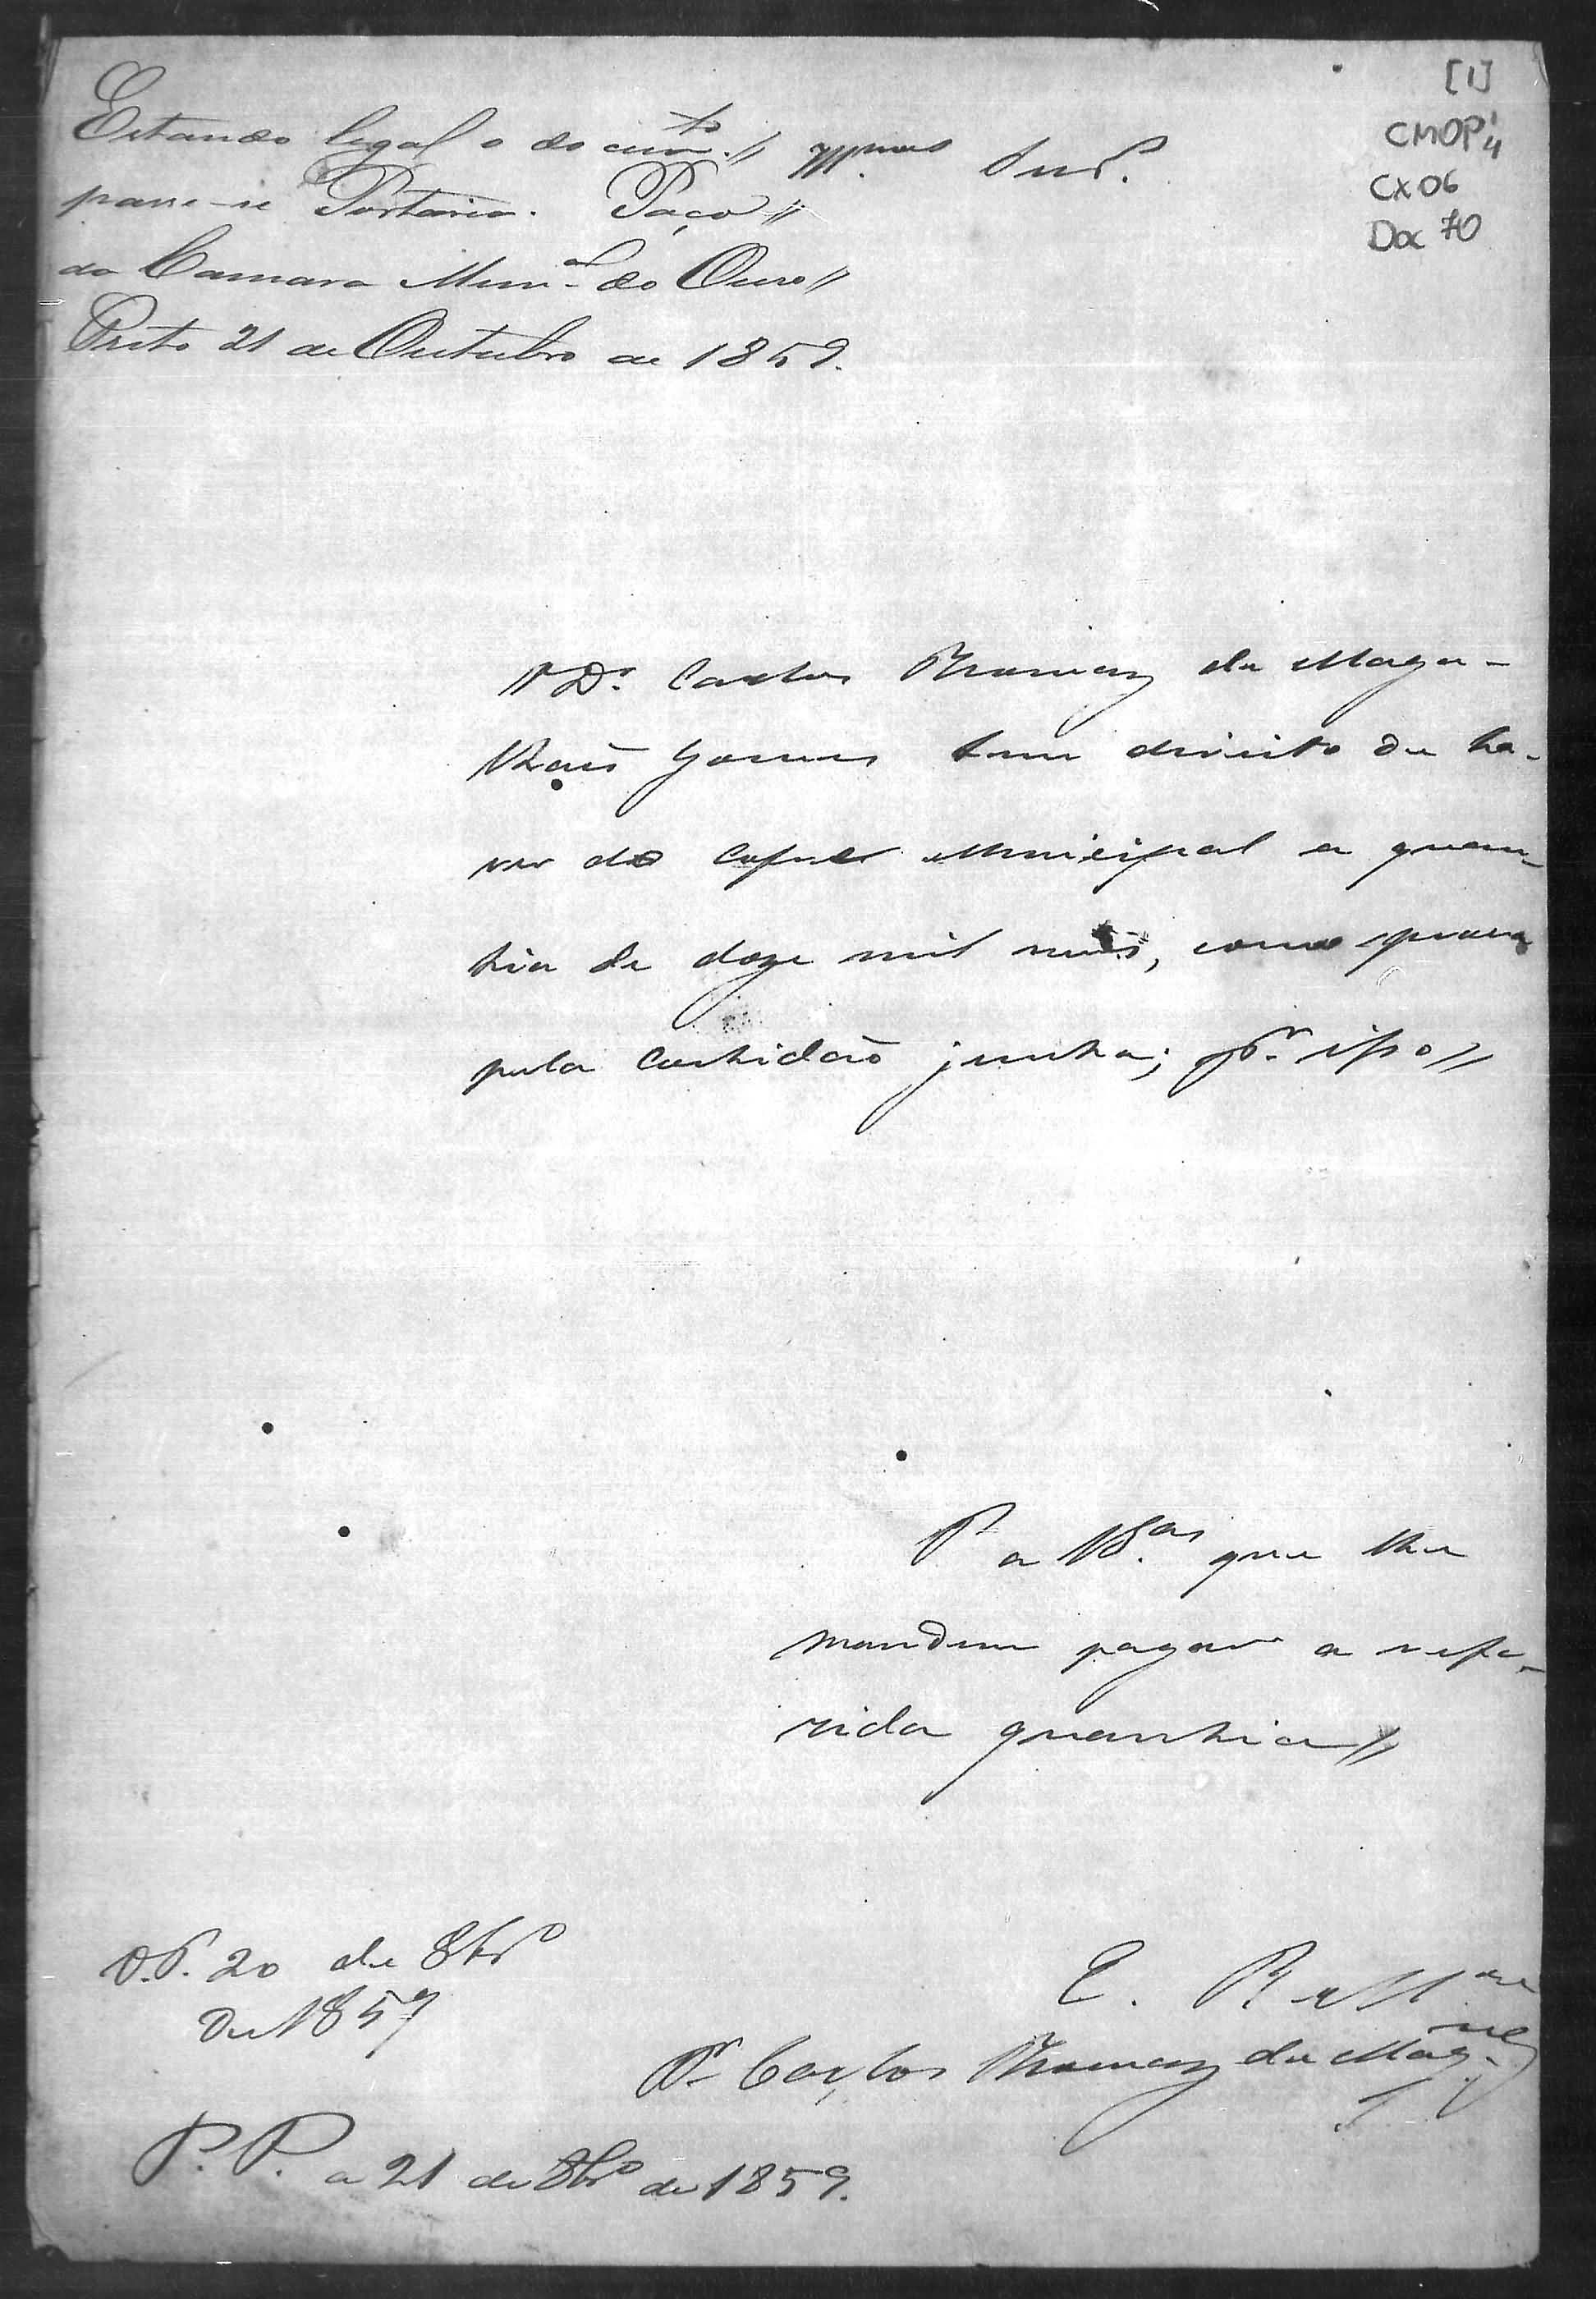 [1]
CMOP 4
CX 06
Doc 70
Estando legal o docum.to //
passe-se Portaria. Paço //
da Camara Mun.al do Ouro //
Preto 21 de Outubro de 1859.
Ill.mos Snr.s
O Dr. Carlos Thomaz de Maga-
lhães Gomes tem direito de ha-
ver do cofre Municipal a quan-
tia de doze mil reis, como prova
pela certidão junta; p.r isso //
P. a V.Sas que lhe
mandem pagar a refe-
rida quantia //
O.P. 20 de 8br.o
de 1859
E. R. M.ce
Dr Carlos Thomaz de Mag.
P.P. a 21 de 8br.o de 1859.